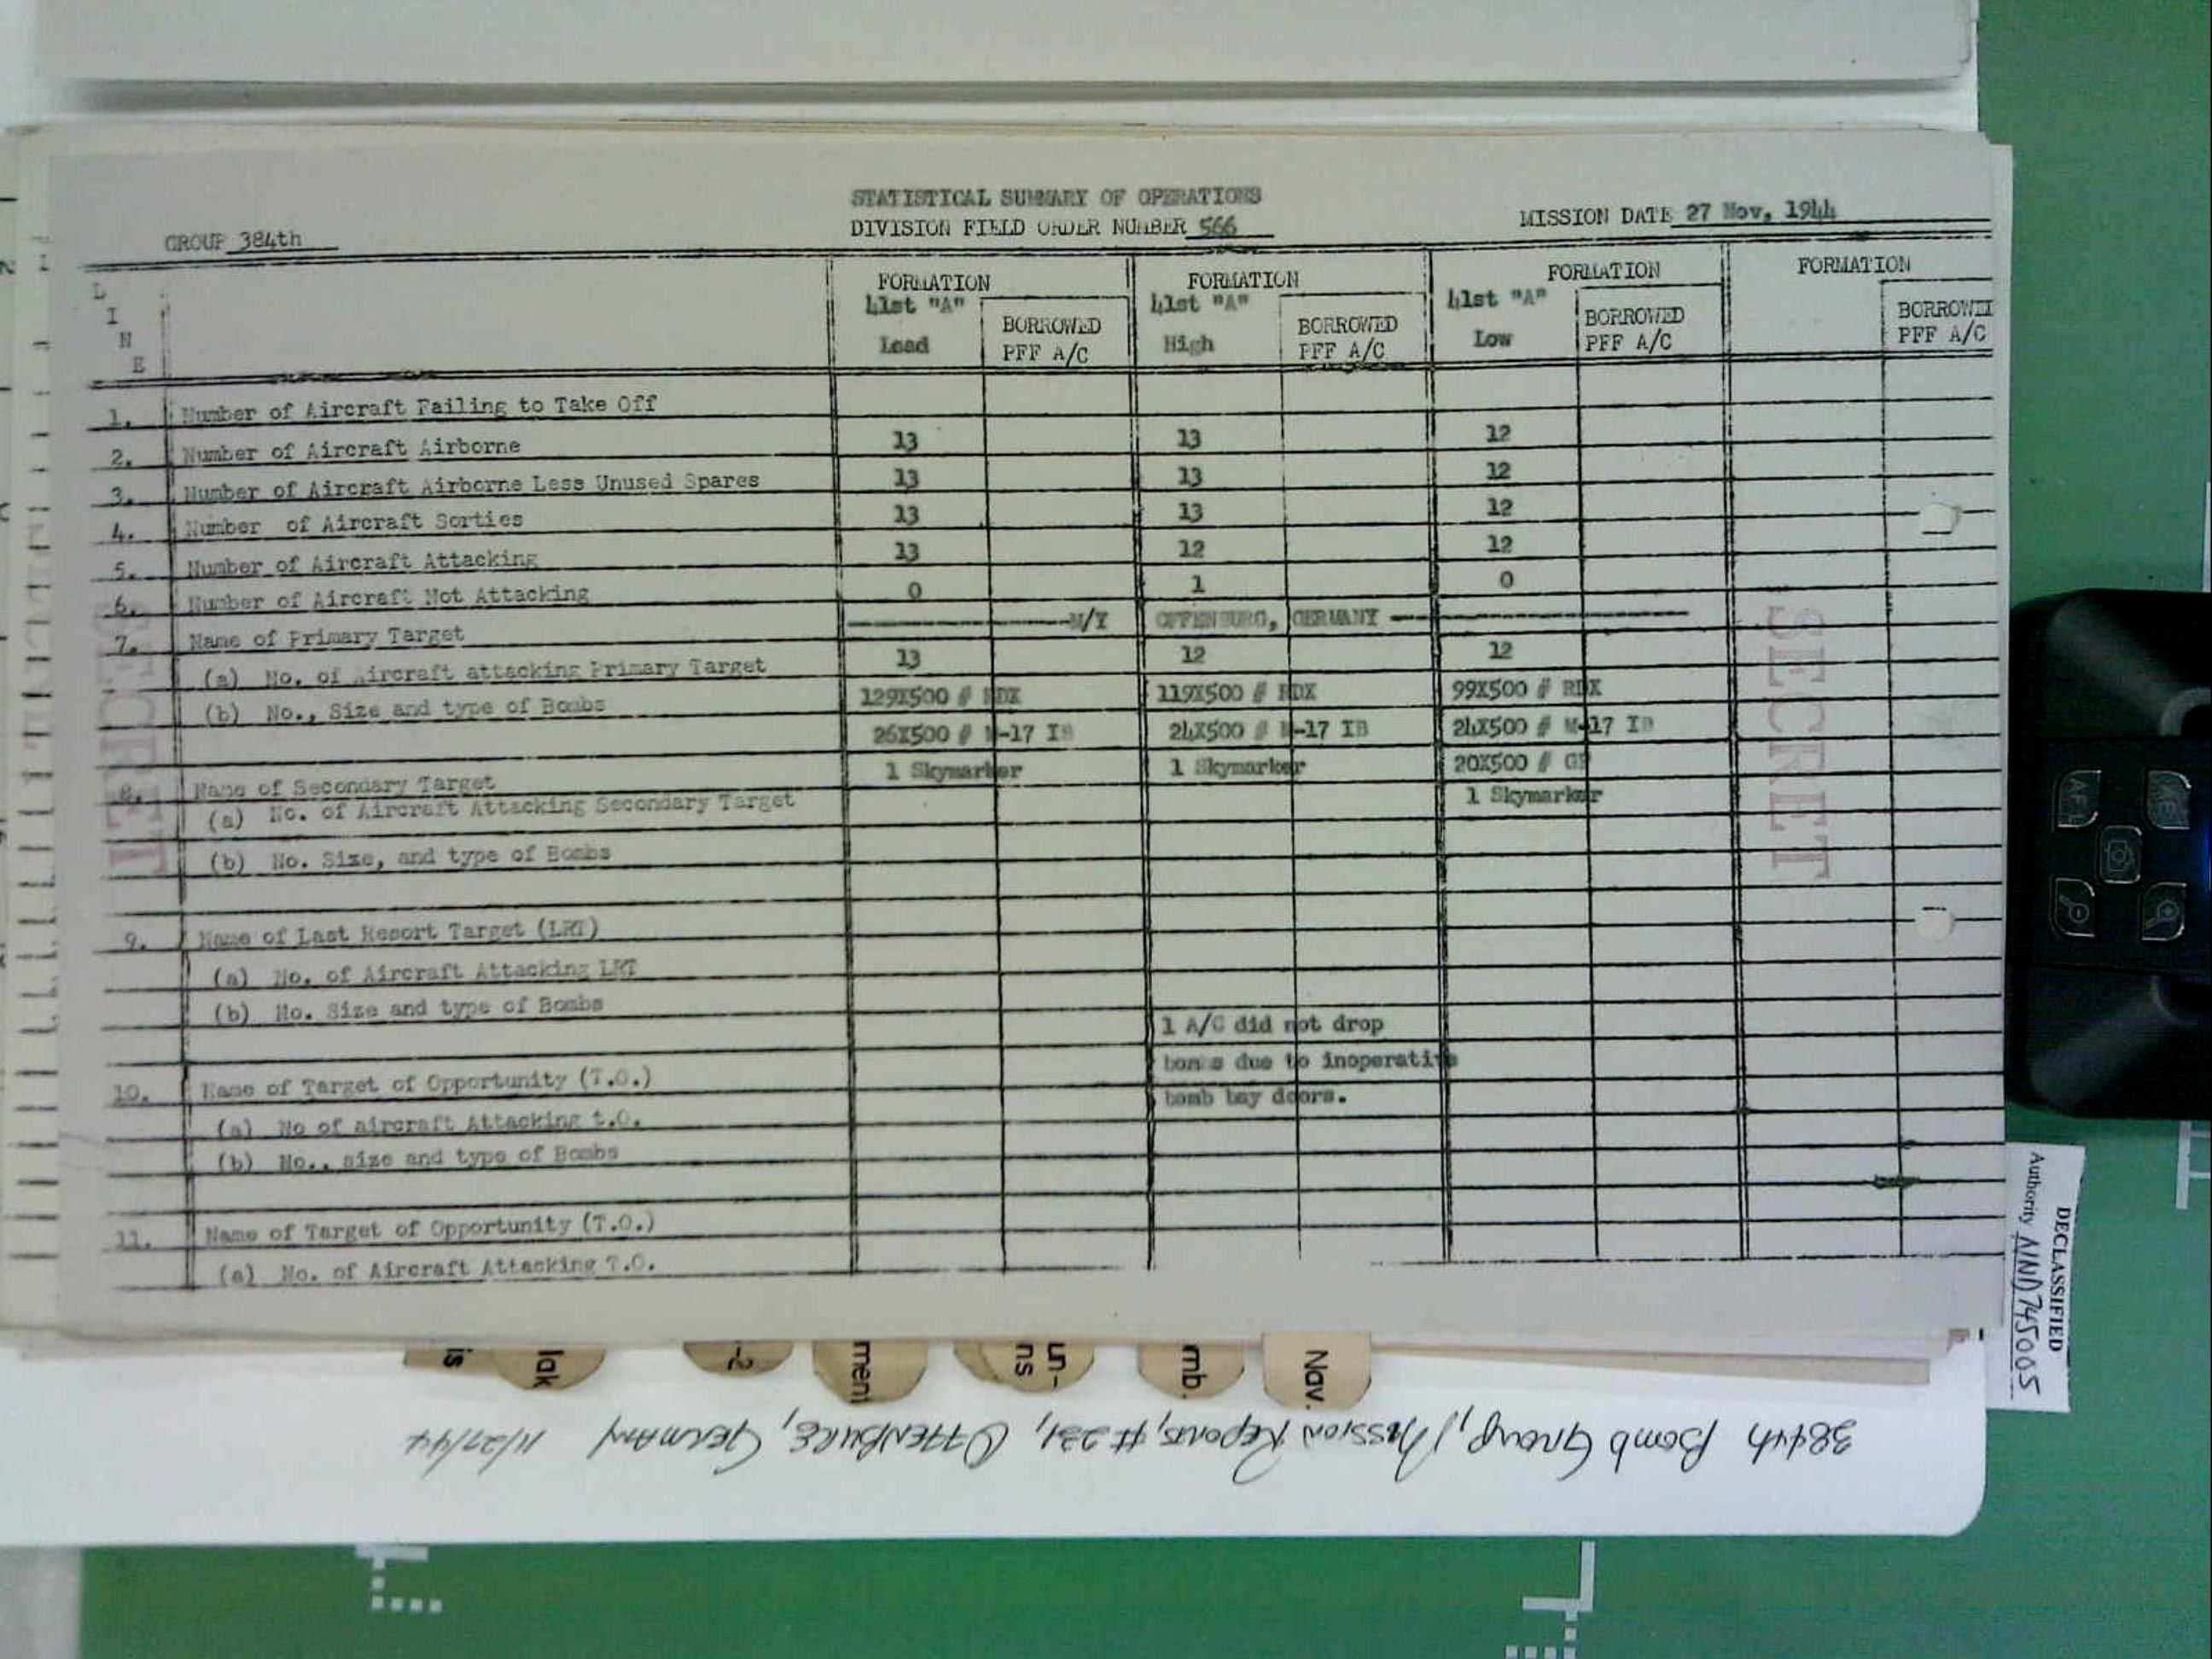 STATISTICAL SUMMARY OF OPERATIONS
GROUP 384th DIVISION FIELD ORDER NUMBER 566 MISSION DATE 27 Nov, 1944
LINE
FORMATION FORMATION FORMATION FORMATION
41st "A" Lead BORROWED PFF A/C 41st "A" High BORROWED PFF A/C 41st "A" Low BORROWED PFF A/C PFF A/C
1. Number of Aircraft Failing to Take Off
2. Number of Aircraft Airborne 13 13 12
3. Number of Aircraft Airborne Less Unused Spares 13 13 12
4. Number of Aircraft Sorties 13 13 12
5. Number of Aircraft Attacking 13 12 12
6. Number of Aircraft Not Attacking 0 1 0
7. Name of Primary Target M/Y OFFENBURG, GERMANY
(a) No. of Aircraft attacking Primary Target 13 12 12
(b) No., Size and type of Bombs 129X500 # RDX 119X500 # RDX 99X500 # RDX
26X500 # M-17 IB 24X500 # M-17 IB 24X500 # M-17 IB
8. Name of Secondary Target 1 Skymarker 1 Skymarker 20X500 # GP
(a) No. of Aircraft Attacking Secondary Target 1 Skymarker
(b) No. Size, and type of Bombs
9. Name of Last Resort Target (LRT)
(a) No. of Aircraft Attacking LRT
(b) No. Size and type of Bombs
1 A/C did not drop
bombs due to inoperative
10. Name of Target of Opportunity (T.O.) bomb bay doors.
(a) No of aircraft Attacking t.O.
(b) No., size and type of Bombs
11. Name of Target of Opportunity (T.O.)
(a) No. of Aircraft Attacking T.O.
SECRET
SECRET
DECLASSIFIED
Authority NND745005
Nav.
mb.
un-
ns
ment
-2
lak
is
384th Bomb Group, Mission Reports, #231, OFFENBURG, GERMANY 11/27/44
AEL